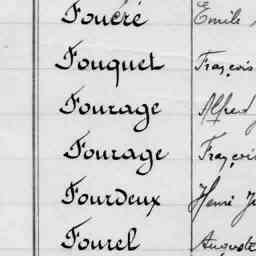 Foucré Emile
Fouquet François
Fourage Alfred
Fourage François
Fourdeux Henri
Fourel Auguste